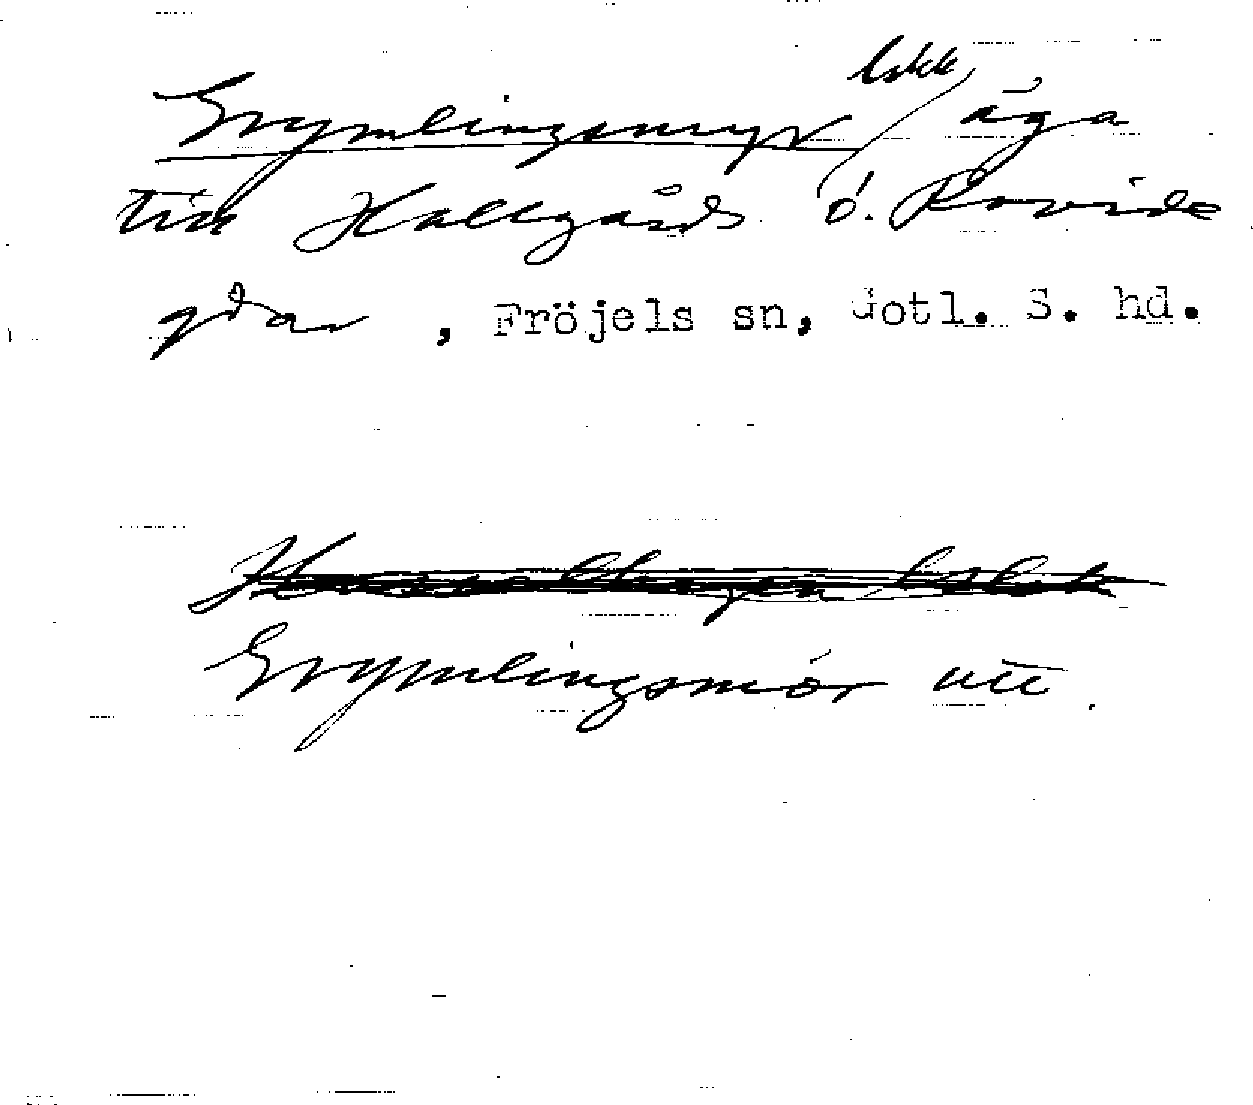 Grymlingsmyr /äga
till Hallgårds ö. Rovide
gdar, Fröjels sn, Gotl. S. hd.
Grymlingsmör utt.